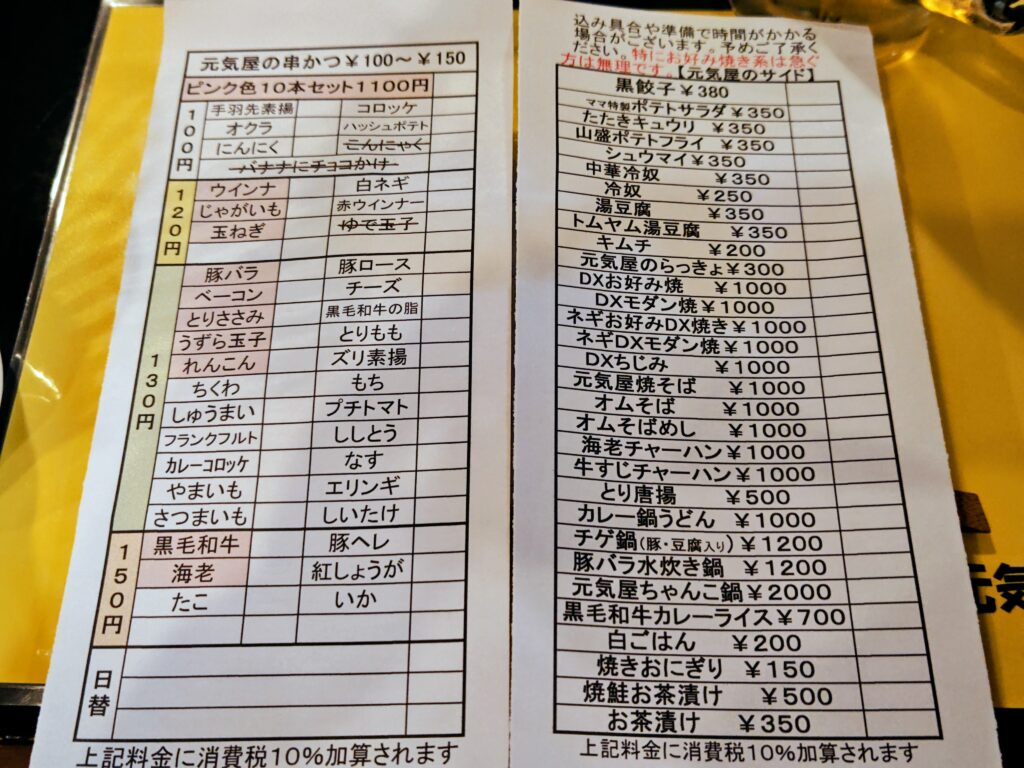 元気屋の串かつ￥100〜￥150
ピンク色10本セット1100円
100円
手羽先素揚 コロッケ
オクラ ハッシュポテト
にんにく こんにゃく
バナナにチョコかけ
120円
ウインナ 白ネギ
じゃがいも 赤ウインナー
玉ねぎ ゆで玉子
130円
豚バラ 豚ロース
ベーコン チーズ
とりささみ 黒毛和牛の脂
うずら玉子 とりもも
れんこん ズリ素揚
ちくわ もち
しゅうまい プチトマト
フランクフルト ししとう
カレーコロッケ なす
やまいも エリンギ
さつまいも しいたけ
150円
黒毛和牛 豚ヘレ
海老 紅しょうが
たこ いか
日替
上記料金に消費税10%加算されます
込み具合や準備で時間がかかる
場合がございます。予めご了承く
ださい。特にお好み焼き系は急ぐ
方は無理です。【元気屋のサイド】
黒餃子￥380
ママ特製ポテトサラダ￥350
たたきキュウリ ￥350
山盛ポテトフライ ￥350
シュウマイ￥350
中華冷奴 ￥350
冷奴 ￥250
湯豆腐 ￥350
トムヤム湯豆腐 ￥350
キムチ ￥200
元気屋のらっきょ￥300
DXお好み焼 ￥1000
DXモダン焼￥1000
ネギお好みDX焼き￥1000
ネギDXモダン焼￥1000
DXちじみ ￥1000
元気屋焼そば ￥1000
オムそば ￥1000
オムそばめし ￥1000
海老チャーハン￥1000
牛すじチャーハン￥1000
とり唐揚 ￥500
カレー鍋うどん ￥1000
チゲ鍋(豚・豆腐入り)￥1200
豚バラ水炊き鍋 ￥1200
元気屋ちゃんこ鍋￥2000
黒毛和牛カレーライス￥700
白ごはん ￥200
焼きおにぎり ￥150
焼鮭お茶漬け ￥500
お茶漬け ￥350
上記料金に消費税10%加算されます
元気